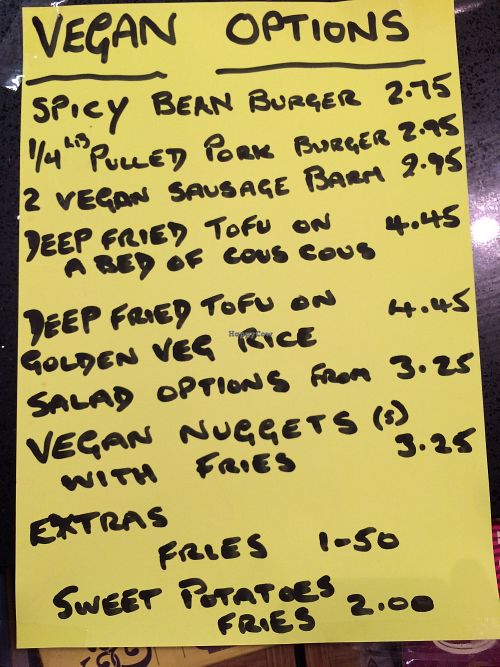 VEGAN OPTIONS
SPICY BEAN BURGER 2.75
1/4 LB PULLED PORK BURGER 2.95
2 VEGAN SAUSAGE BARM 2.95
DEEP FRIED TOFU ON 4.45
A BED OF COUS COUS
DEEP FRIED TOFU ON 4.45
GOLDEN VEG RICE
SALAD OPTIONS FROM 3.25
VEGAN NUGGETS (5)
WITH FRIES 3.25
EXTRAS
FRIES 1-50
SWEET POTATOES
FRIES 2.00
HappyCow